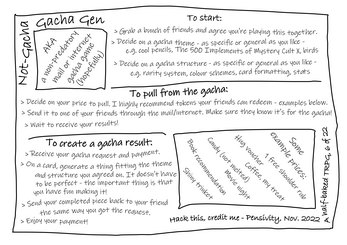 Not-Gacha
Gacha Gen
AKA
a non-predatory
mail or internet
gacha game
(hopefully)
To start:
> Grab a bunch of friends and agree you're playing this together.
> Decide on a gacha theme - as specific or general as you like -
e.g. cool Pencils, The 500 Implements of Mystery Cult X, birds
> Decide on a gacha structure - as specific or general as you like -
e.g. rarity system, colour schemes, card formatting, stats
To pull from the gacha:
> Decide on your price to pull. I highly recommend tokens your friends can redeem - examples below.
> Send it to one of your friends through the mail/internet. Make sure they know it's for the gacha!
> Wait to receive your results!
To create a gacha result:
> Receive your gacha request and payment.
> On a card, generate a thing fitting the theme
and structure you agreed on. It doesn't have
to be perfect - the important thing is that
you have fun making it!
> Send your completed piece back to your friend
the same way you got the request.
> Enjoy your payment!
Some
example prices:
Hug voucher, 1 free shoulder rub
Coffee, my treat
Movie night
Candy (not melted)
Book recommendation
Shiny trinket
Hack this, credit me - Pensivity, Nov. 2022
A half-baked TRPG, 6 of 22